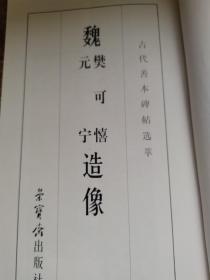 古代善本碑帖选萃
魏
樊可憘
元宁
造像
荣宝斋出版社